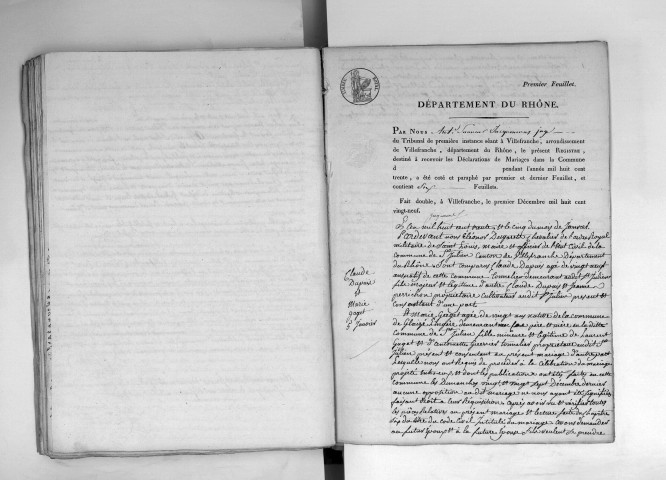 Premier Feuillet.
DÉPARTEMENT DU RHÔNE.
PAR NOUS
du Tribunal de première instance séant à Villefranche, arrondissement
de Villefranche, département du Rhône, le présent REGISTRE,
destiné à recevoir les Déclarations de Mariages dans la Commune
d pendant l'année mil huit cent
trente, a été coté et paraphé par premier et dernier Feuillet, et
contient Six Feuillets.
Fait double, à Villefranche, le premier Décembre mil huit cent
vingt-neuf.
L'an mil huit cent trente et le cinq du mois de Janvier
pardevant nous Eléonor chevalier de l'ordre Royal
militaire de Saint Louis, maire et officier de l'état civil de la
commune de St Julien Canton de Villefranche Département
du Rhône sont comparus Claude Dupuis agé de vingt neuf
ans natif de cette commune tonnelier demeurant audit St Julien
fils majeur et légitime d'autre Claude Dupuis et
propriétaire cultivateur audit St Julien présent et
consentant d'une part
Claude
Dupuis
et
Marie
goget
5 Janvier
Et Marie Goget agée de vingt ans native de la commune
de demeurant avec père et mère en la ditte
Commune de St Julien fille mineure et légitime de Laurent
Goget et d'Antoinette tonnelier propriétaire audit St
Julien présent et consentant au présent mariage d'autre part
Lesquels nous ont Requis de procéder à la célébration du mariage
projeté entr'eux et dont les publications ont été faites en cette
commune les Dimanches vingt et vingt sept Décembre dernier
aucune opposition au dit mariage ne nous ayant été signifiée
faisant droit à leur Réquisition après avoir vu et vérifié toutes
les pièces Relatives au présent mariage et lecture faite du chapitre
six du titre du code Civil Intitulé du mariage avons demandé
au futur époux et à la future épouse s'ils veulent se prendre